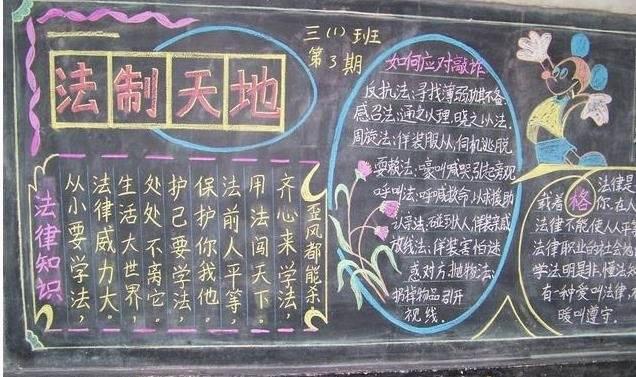 法制天地
三(1)班
第3期
法律知识
从小要学法,
法律威力大.
生活大世界,
处处不离它.
护己要学法,
保护你我他.
法前人平等,
用法闯天下.
齐心来学法,
歪风都能杀
如何应对敲诈
反抗法:寻找薄弱
感召法:通之以理,晓之以法.
周旋法:佯装服从,伺机逃脱.
耍赖法:嚎叫喊哭引起旁观
呼叫法:呼喊救命,以求援助
认亲法:碰到人,佯装亲戚
放线法:佯装害怕迷
惑对方,抛物法:
扔掉物品引开
视线.
法律是
戴着格你.在人
法律不能使人人平等
法律职业的社会地
学法明是非,懂法
有一种爱叫法律,
暖叫遵守.